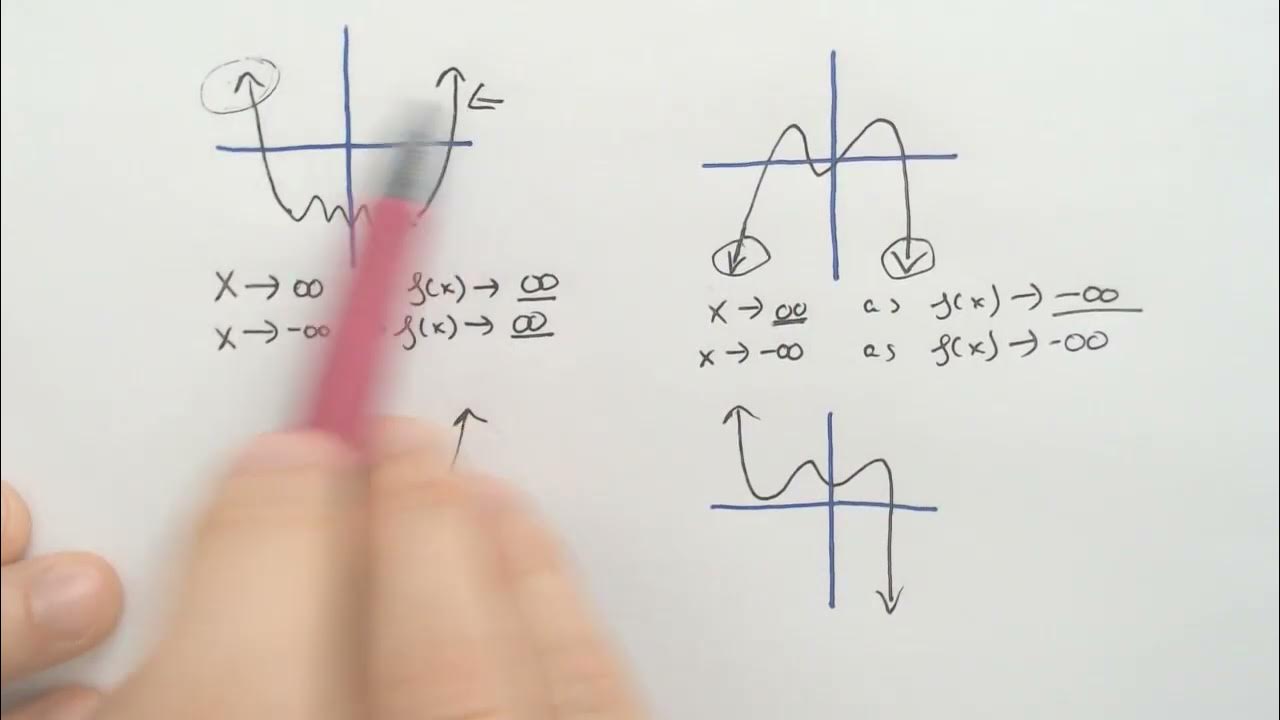 X → ∞ f(x) → ∞
X → -∞ f(x) → ∞
X → ∞ as f(x) → -∞
x → -∞ as f(x) → -∞